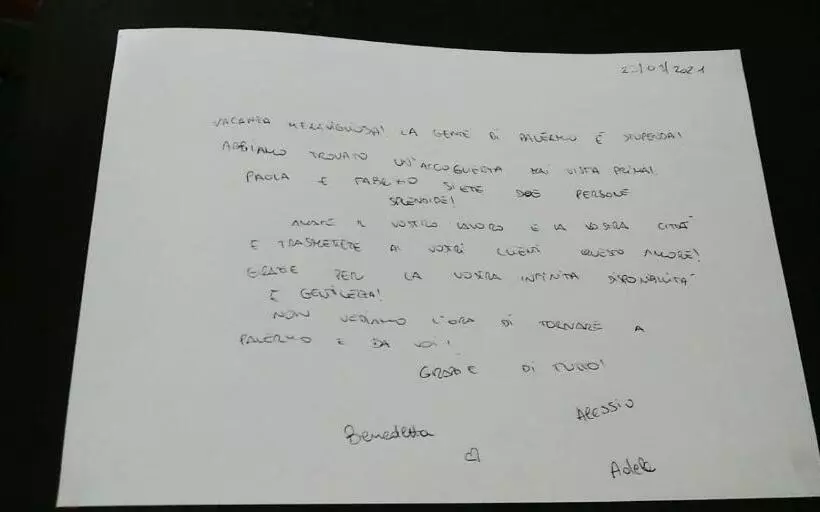 2_/07/2021
VACANZA MERAVIGLIOSA! LA GENTE DI PALERMO È STUPENDA!
ABBIAMO TROVATO UN'ACCOGLIENZA MAI VISTA PRIMA!
PAOLA E FABRIZIO SIETE DUE PERSONE
SPLENDIDE!
AMATE IL VOSTRO LAVORO E LA VOSTRA CITTÀ
E TRASMETTETE AI VOSTRI CLIENTI QUESTO AMORE!
GRAZIE PER LA VOSTRA INFINITA DISPONIBILITÀ
E GENTILEZZA!
NON VEDIAMO L'ORA DI TORNARE A
PALERMO E DA VOI!
GRAZIE DI TUTTO!
ALESSIO
Benedetta
Adele